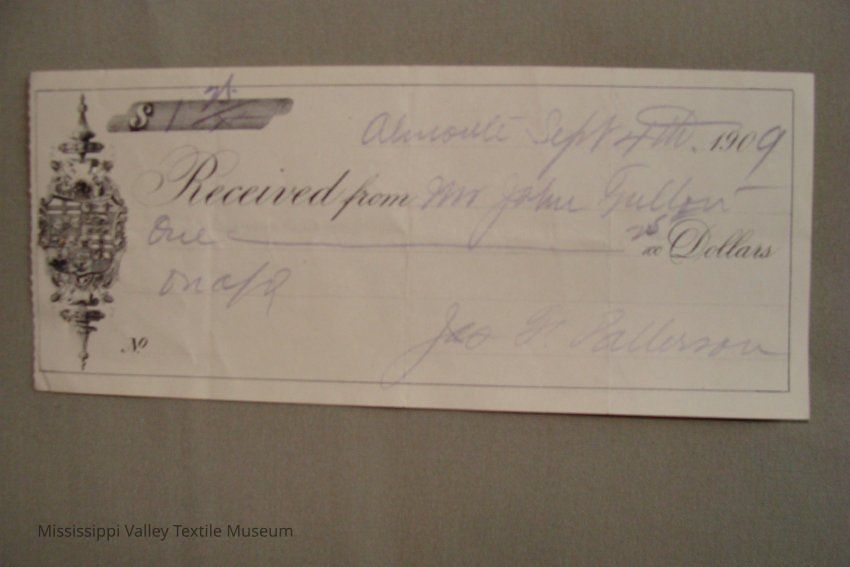 $ 1 25/
Almonte Sept 4th 1909
Received from Mr John Fulton
One 25/100 Dollars
on a/c
Jas F. Patterson
No
Mississippi Valley Textile Museum